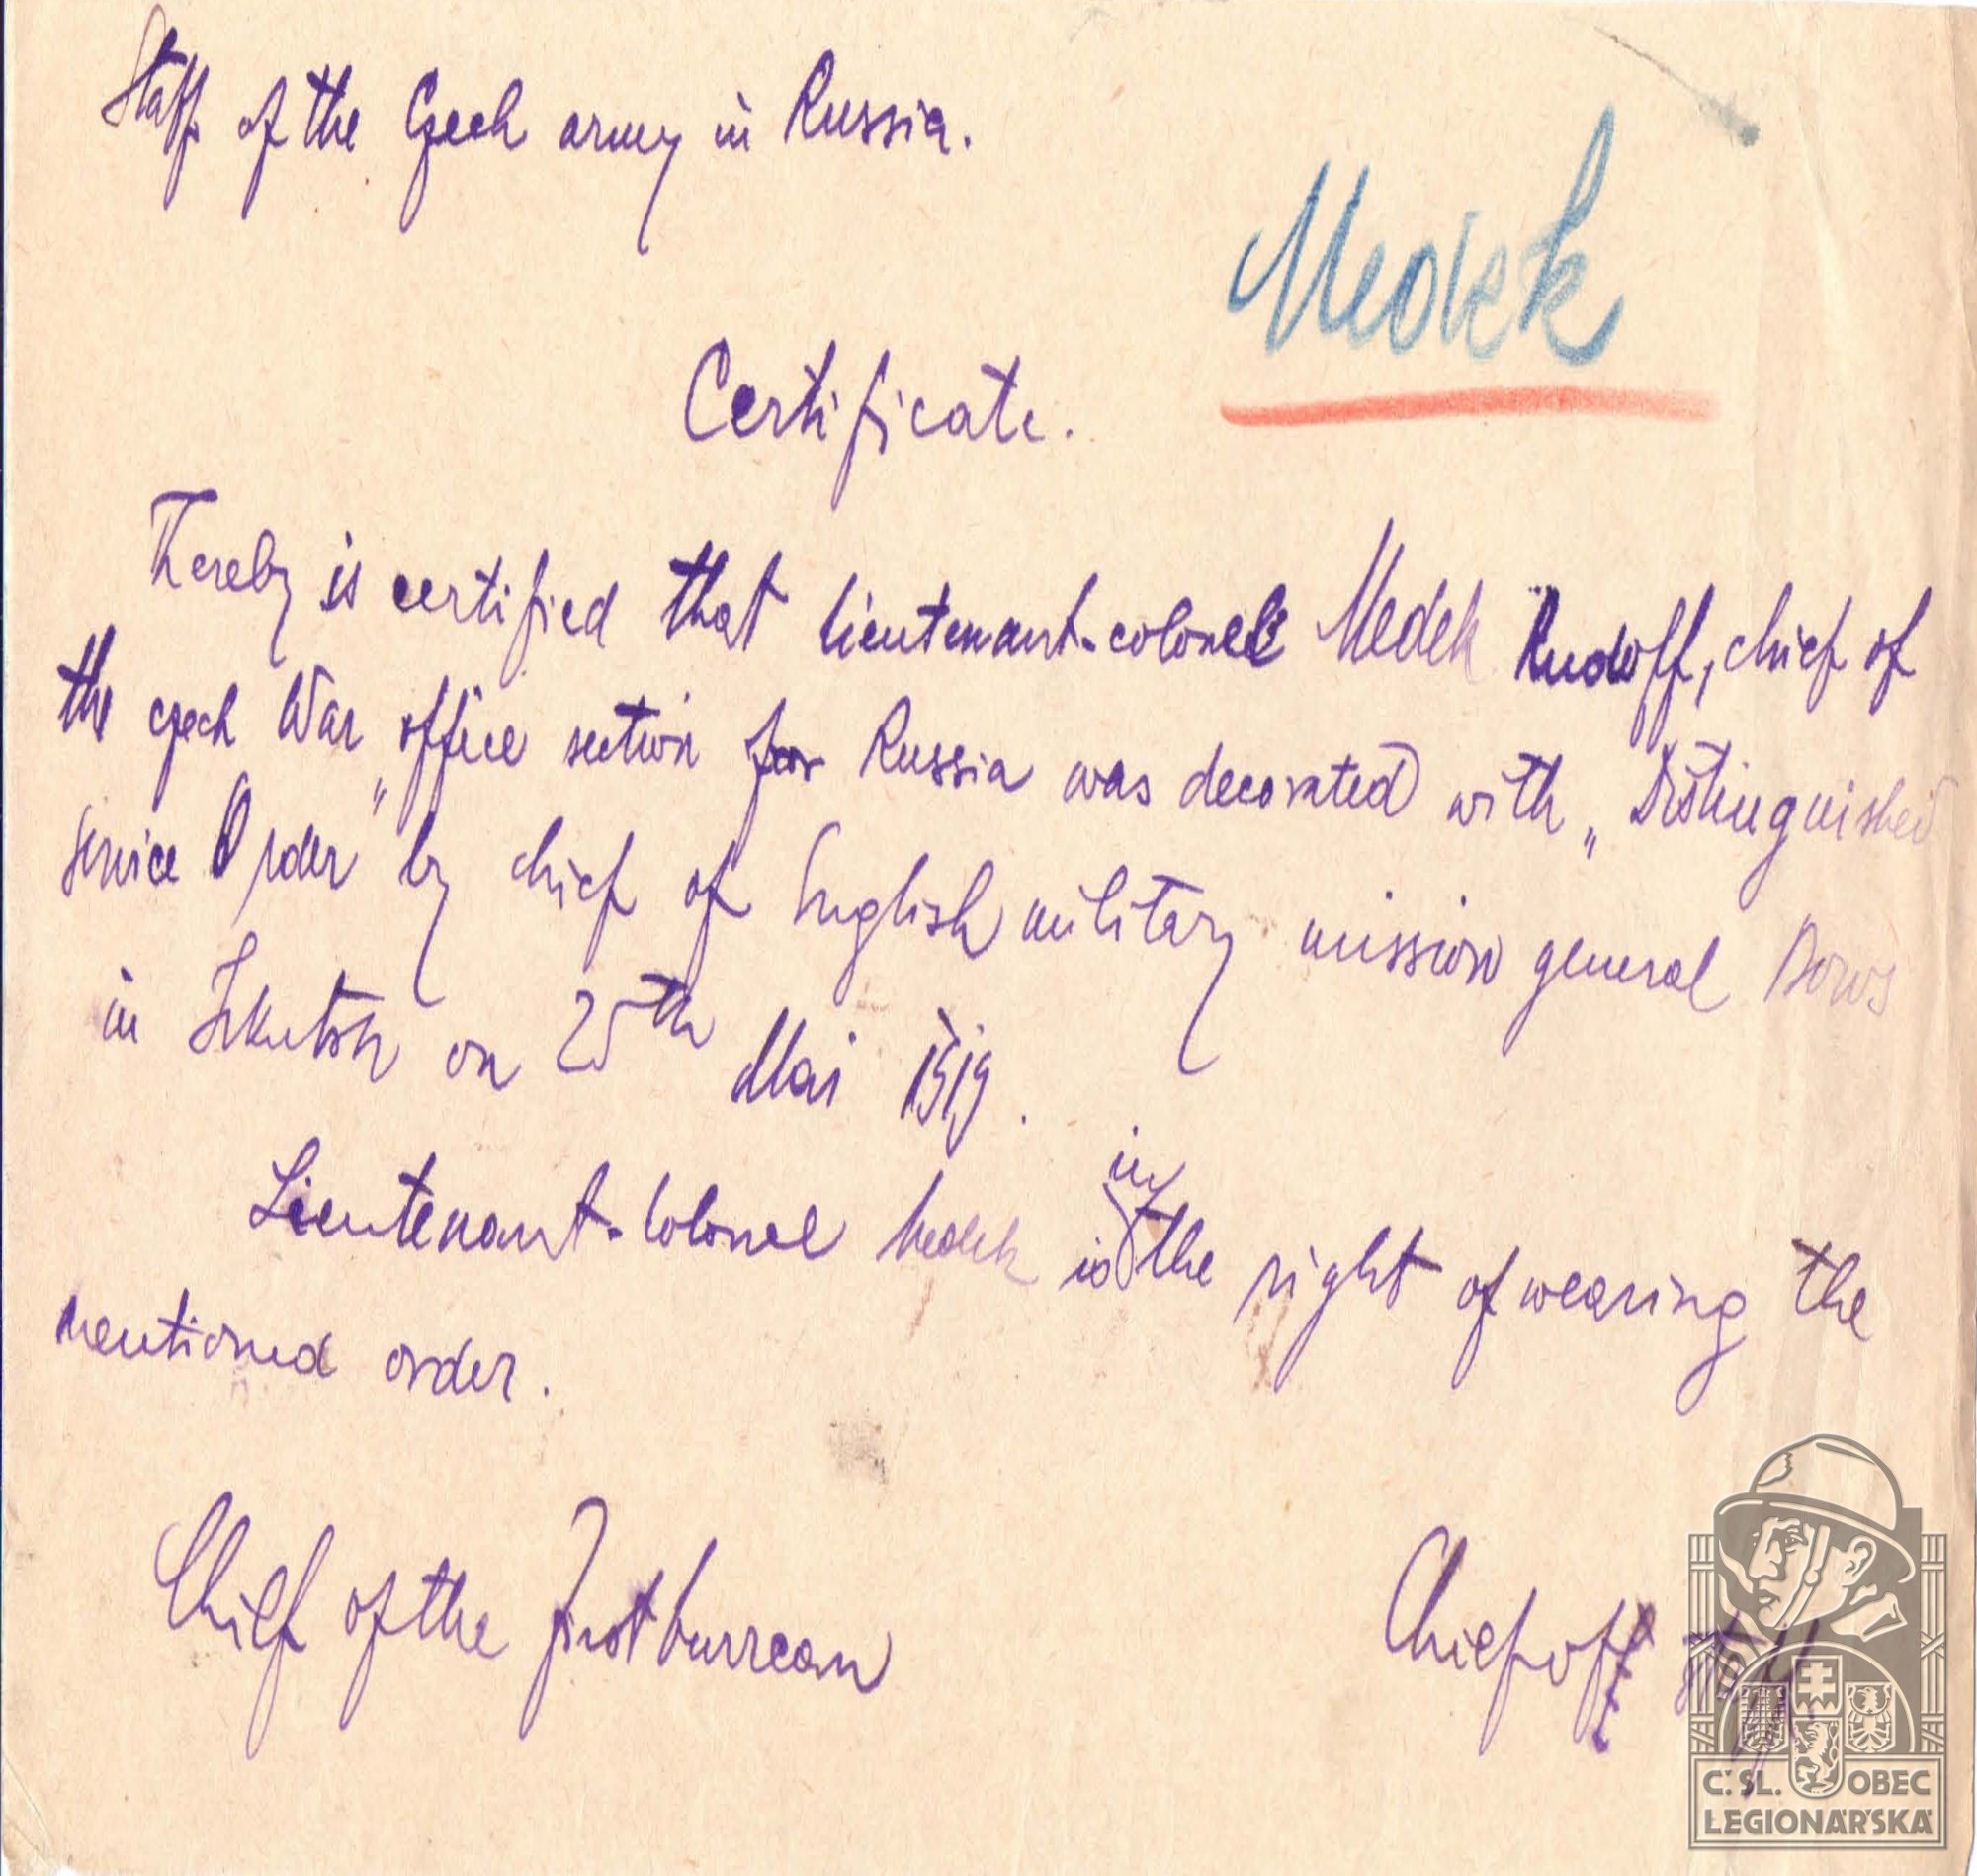 Staff of the Czech army in Russia.
Medek
Certificate.
Thereby is certified that lieutenant-colonel Medek Rudolff, chief of
the czech War „office section for Russia was decorated with „Distinguished
Service Order" by chief of English military mission general
in Irkutsk on 25th Mai 1919.
in
Lieutenant-Colonel Medek is the right of wearing the
mentioned order.
Chief of the first burreau
Chief of
Č.SL. OBEC
LEGIONÁŘSKÁ